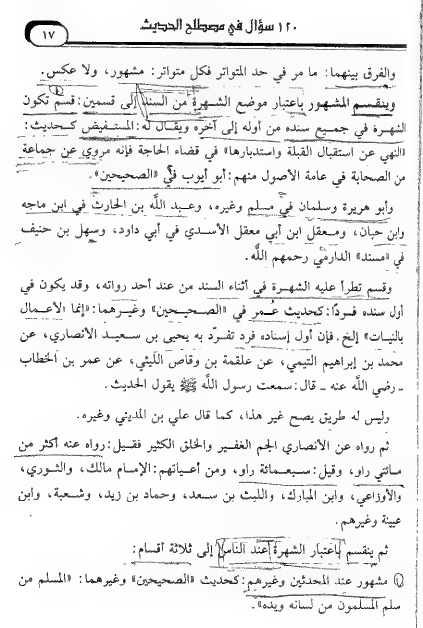 ١٢٠ سؤال في مصطلح الحديث
١٧
والفرق بينهما: ما مر في حد المتواتر فكل متواتر: مشهور، ولا عكس.
وينقسم المشهور باعتبار موضع الشهرة من السند إلى قسمين: قسم تكون
الشهرة في جميع سنده من أوله إلى آخره ويقال له: المستفيض كحديث:
«النهي عن استقبال القبلة واستدبارها» في قضاء الحاجة فإنه مروي عن جماعة
من الصحابة في عامة الأصول منهم: أبو أيوب في «الصحيحين».
وأبو هريرة وسلمان في مسلم وغيره، وعبد اللَّه بن الحارث في ابن ماجه
وابن حبان، ومعقل ابن أبي معقل الأسدي في أبي داود، وسهل بن حنيف
في «مسند» الدارمي رحمهم اللَّه.
وقسم تطرأ عليه الشهرة في أثناء السند من عند أحد رواته، وقد يكون في
أول سنده فردًا: كحديث عُمر في «الصحيحين» وغيرهما: «إنما الأعمال
بالنيات» إلخ. فإن أول إسناده فرد تفرّد به يحيى بن سعيد الأنصاري، عن
محمد بن إبراهيم التيمي، عن علقمة بن وقاص الليثي، عن عمر بن الخطاب
ـ رضي اللَّه عنه ـ قال: سمعت رسول اللَّه ﷺ يقول الحديث.
وليس له طريق يصح غير هذا، كما قال علي بن المديني وغيره.
ثم رواه عن الأنصاري الجم الغفير والخلق الكثير فقيل: رواه عنه أكثر من
مائتي راو، وقيل: سبعمائة راو، ومن أعيانهم: الإمام مالك، والثوري،
والأوزاعي، وابن المبارك، والليث بن سعد، وحماد بن زيد، وشعبة، وابن
عيينة وغيرهم.
ثم ينقسم باعتبار الشهرة عند الناس إلى ثلاثة أقسام:
١) مشهور عند المحدثين وغيرهم: كحديث «الصحيحين» وغيرهما: «المسلم من
سلم المسلمون من لسانه ويده».